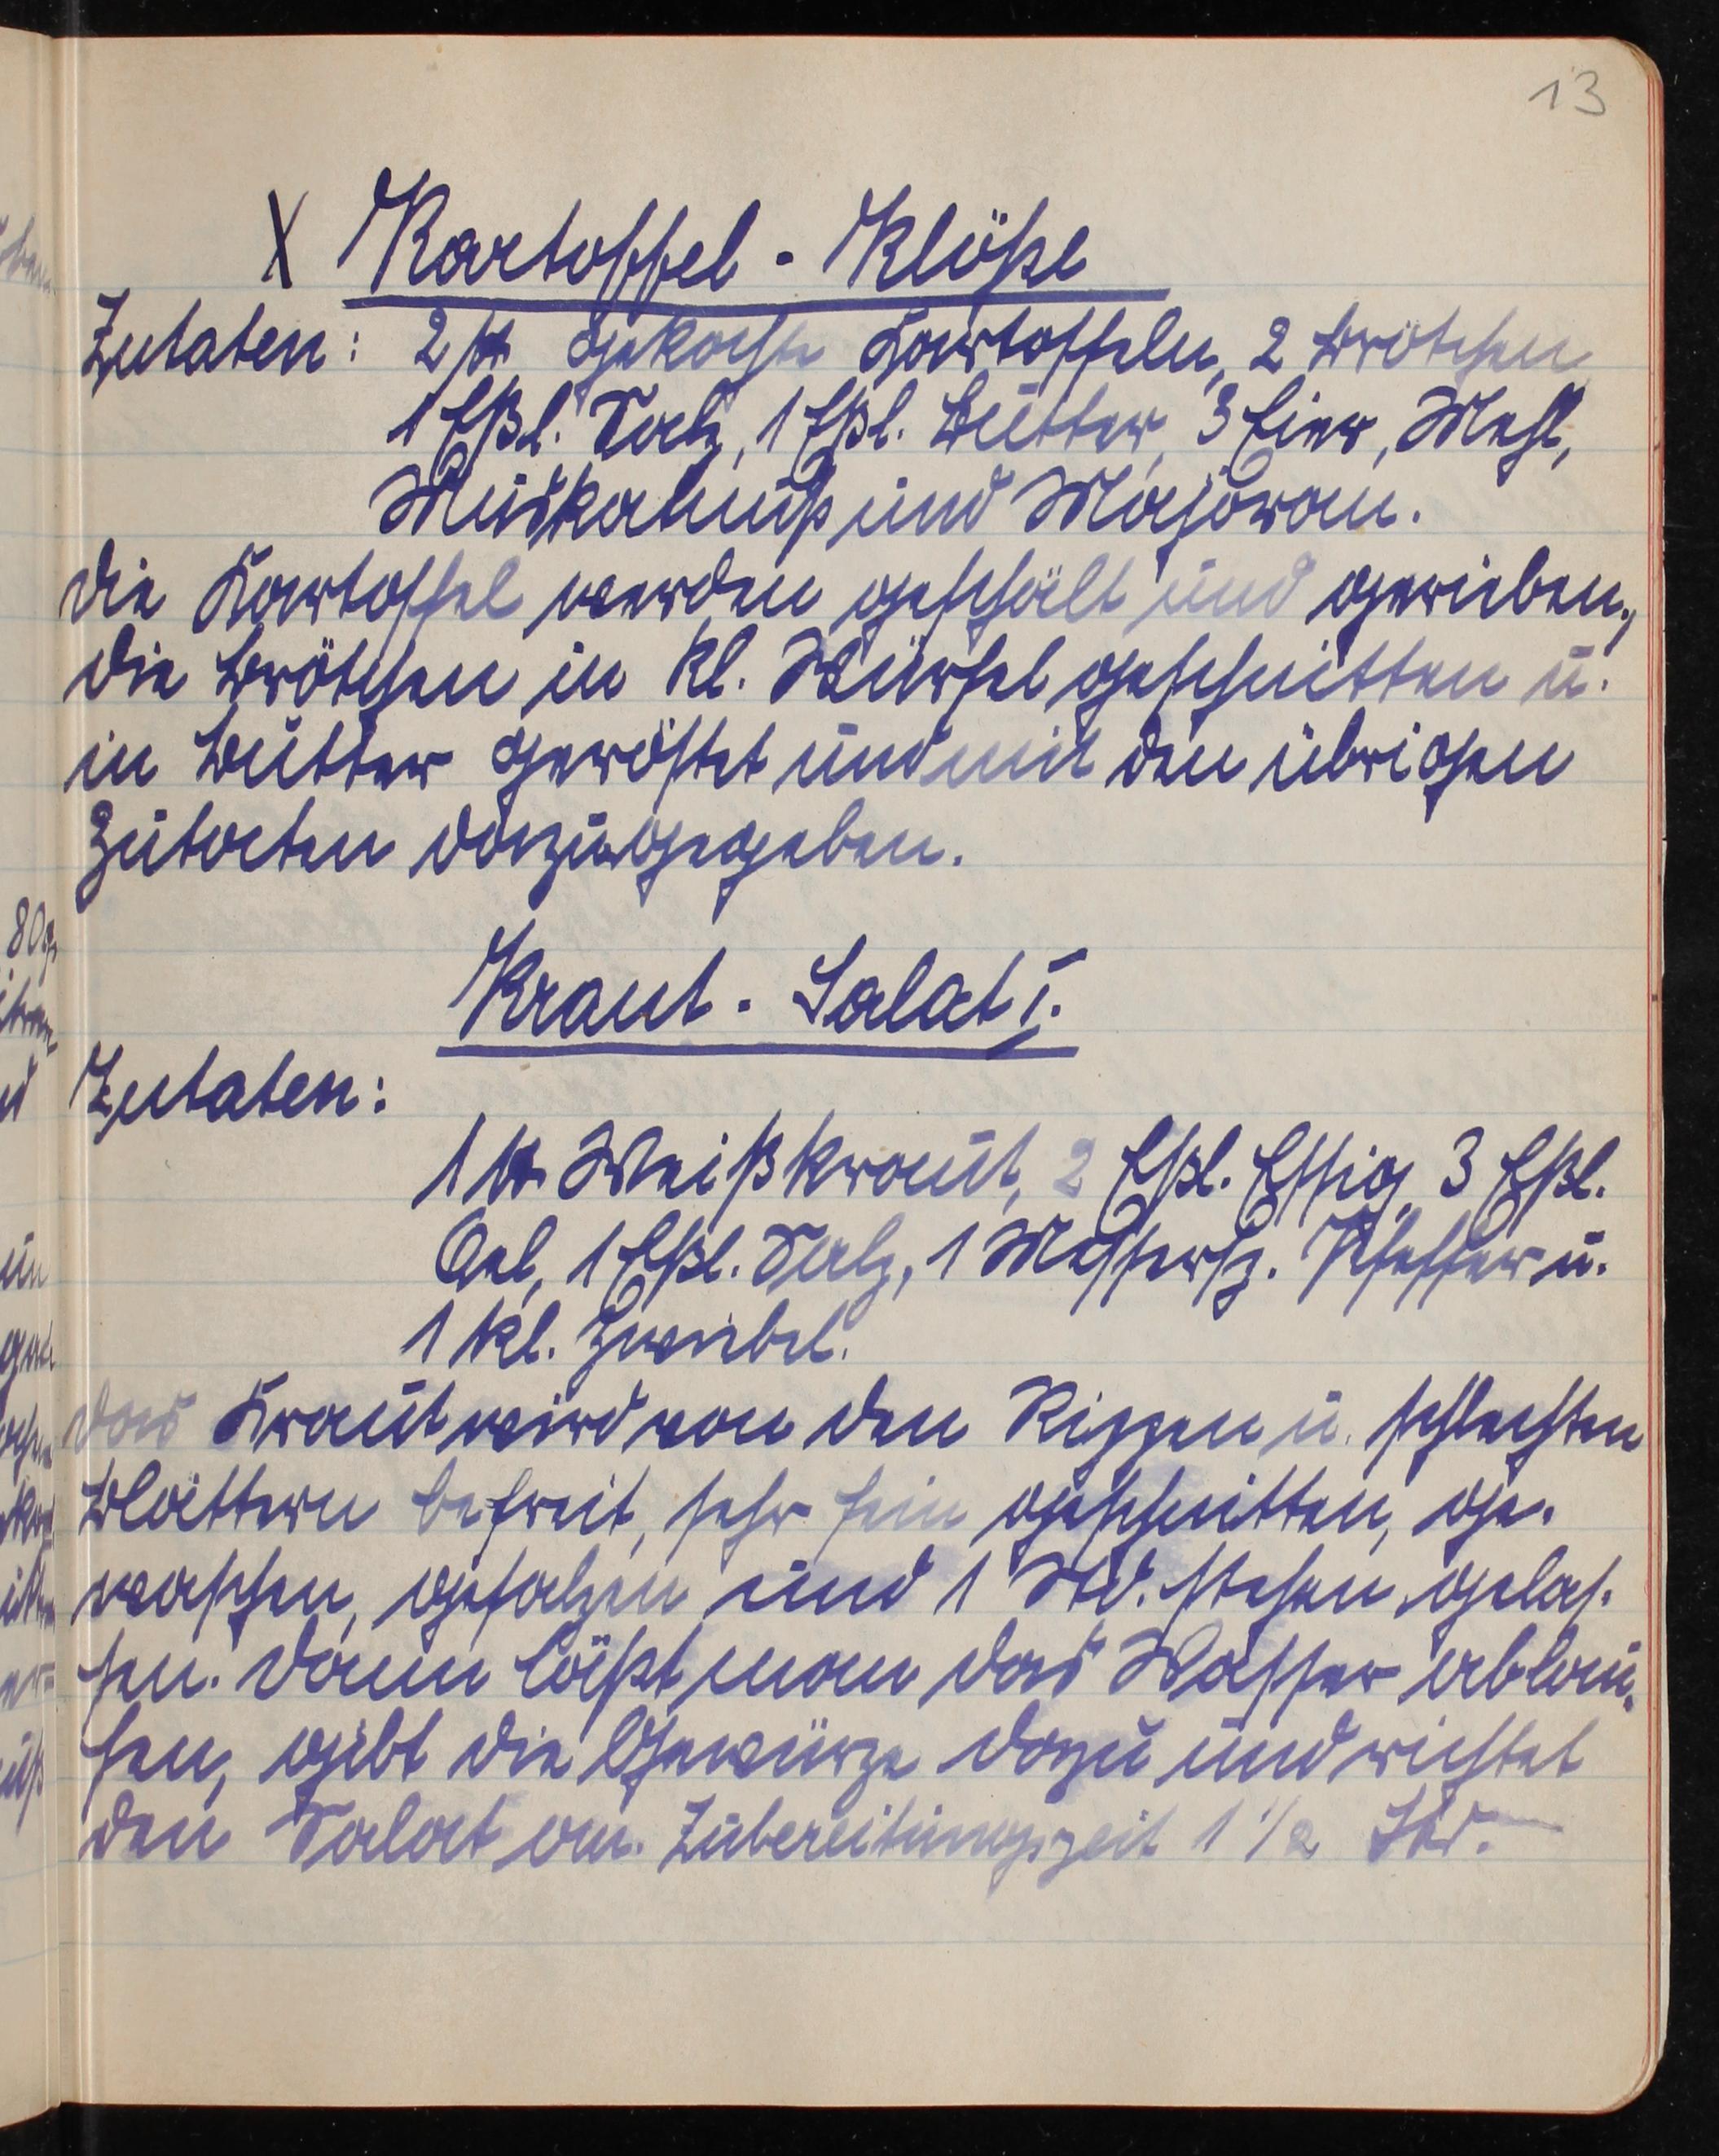 13
X Kartoffel - Klöße
Zutaten: 2 ℔ gekochte Kartoffeln, 2 Brötchen
1 Eßl. Salz, 1 Eßl. Butter, 3 Eier, Mehl,
Muskatnuß und Majoran.
Die Kartoffel werden geschält und gerieben,
die Brötchen in kl. Würfel geschnitten u.
in Butter geröstet und mit den übrigen
Zutaten dazugegeben.
Kraut - Salat I.
Zutaten:
1 ℔ Weißkraut, 2 Eßl. Essig, 3 Eßl.
Oel, 1 Eßl. Salz, 1 Messersp. Pfeffer u.
1 kl. Zwiebel.
Das Kraut wird von den Rippen u. schlechten
Blättern befreit, sehr fein geschnitten, ge-
waschen, gesalzen und 1 Std. stehen gelas-
sen. Dann läßt man das Wasser ablau-
fen, gibt die Gewürze dazu und richtet
den Salat an. Zubereitungszeit 1 1/2 Std.